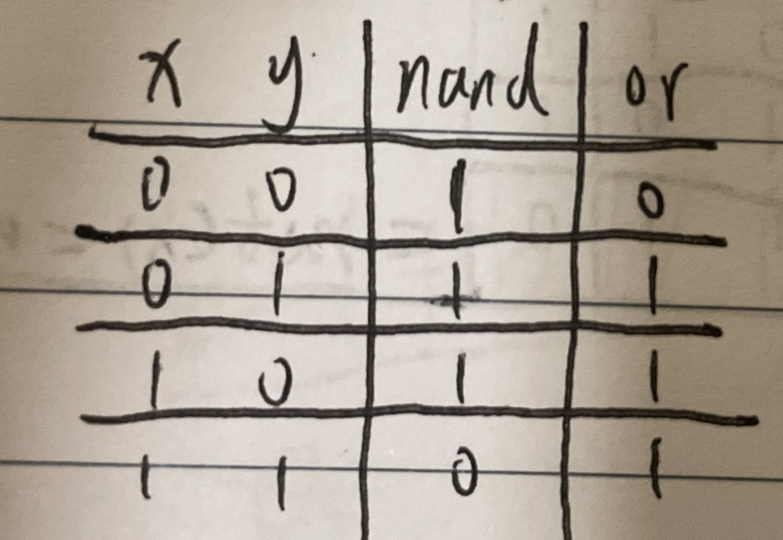 x y nand or
0 0 1 0
0 1 1 1
1 0 1 1
1 1 0 1